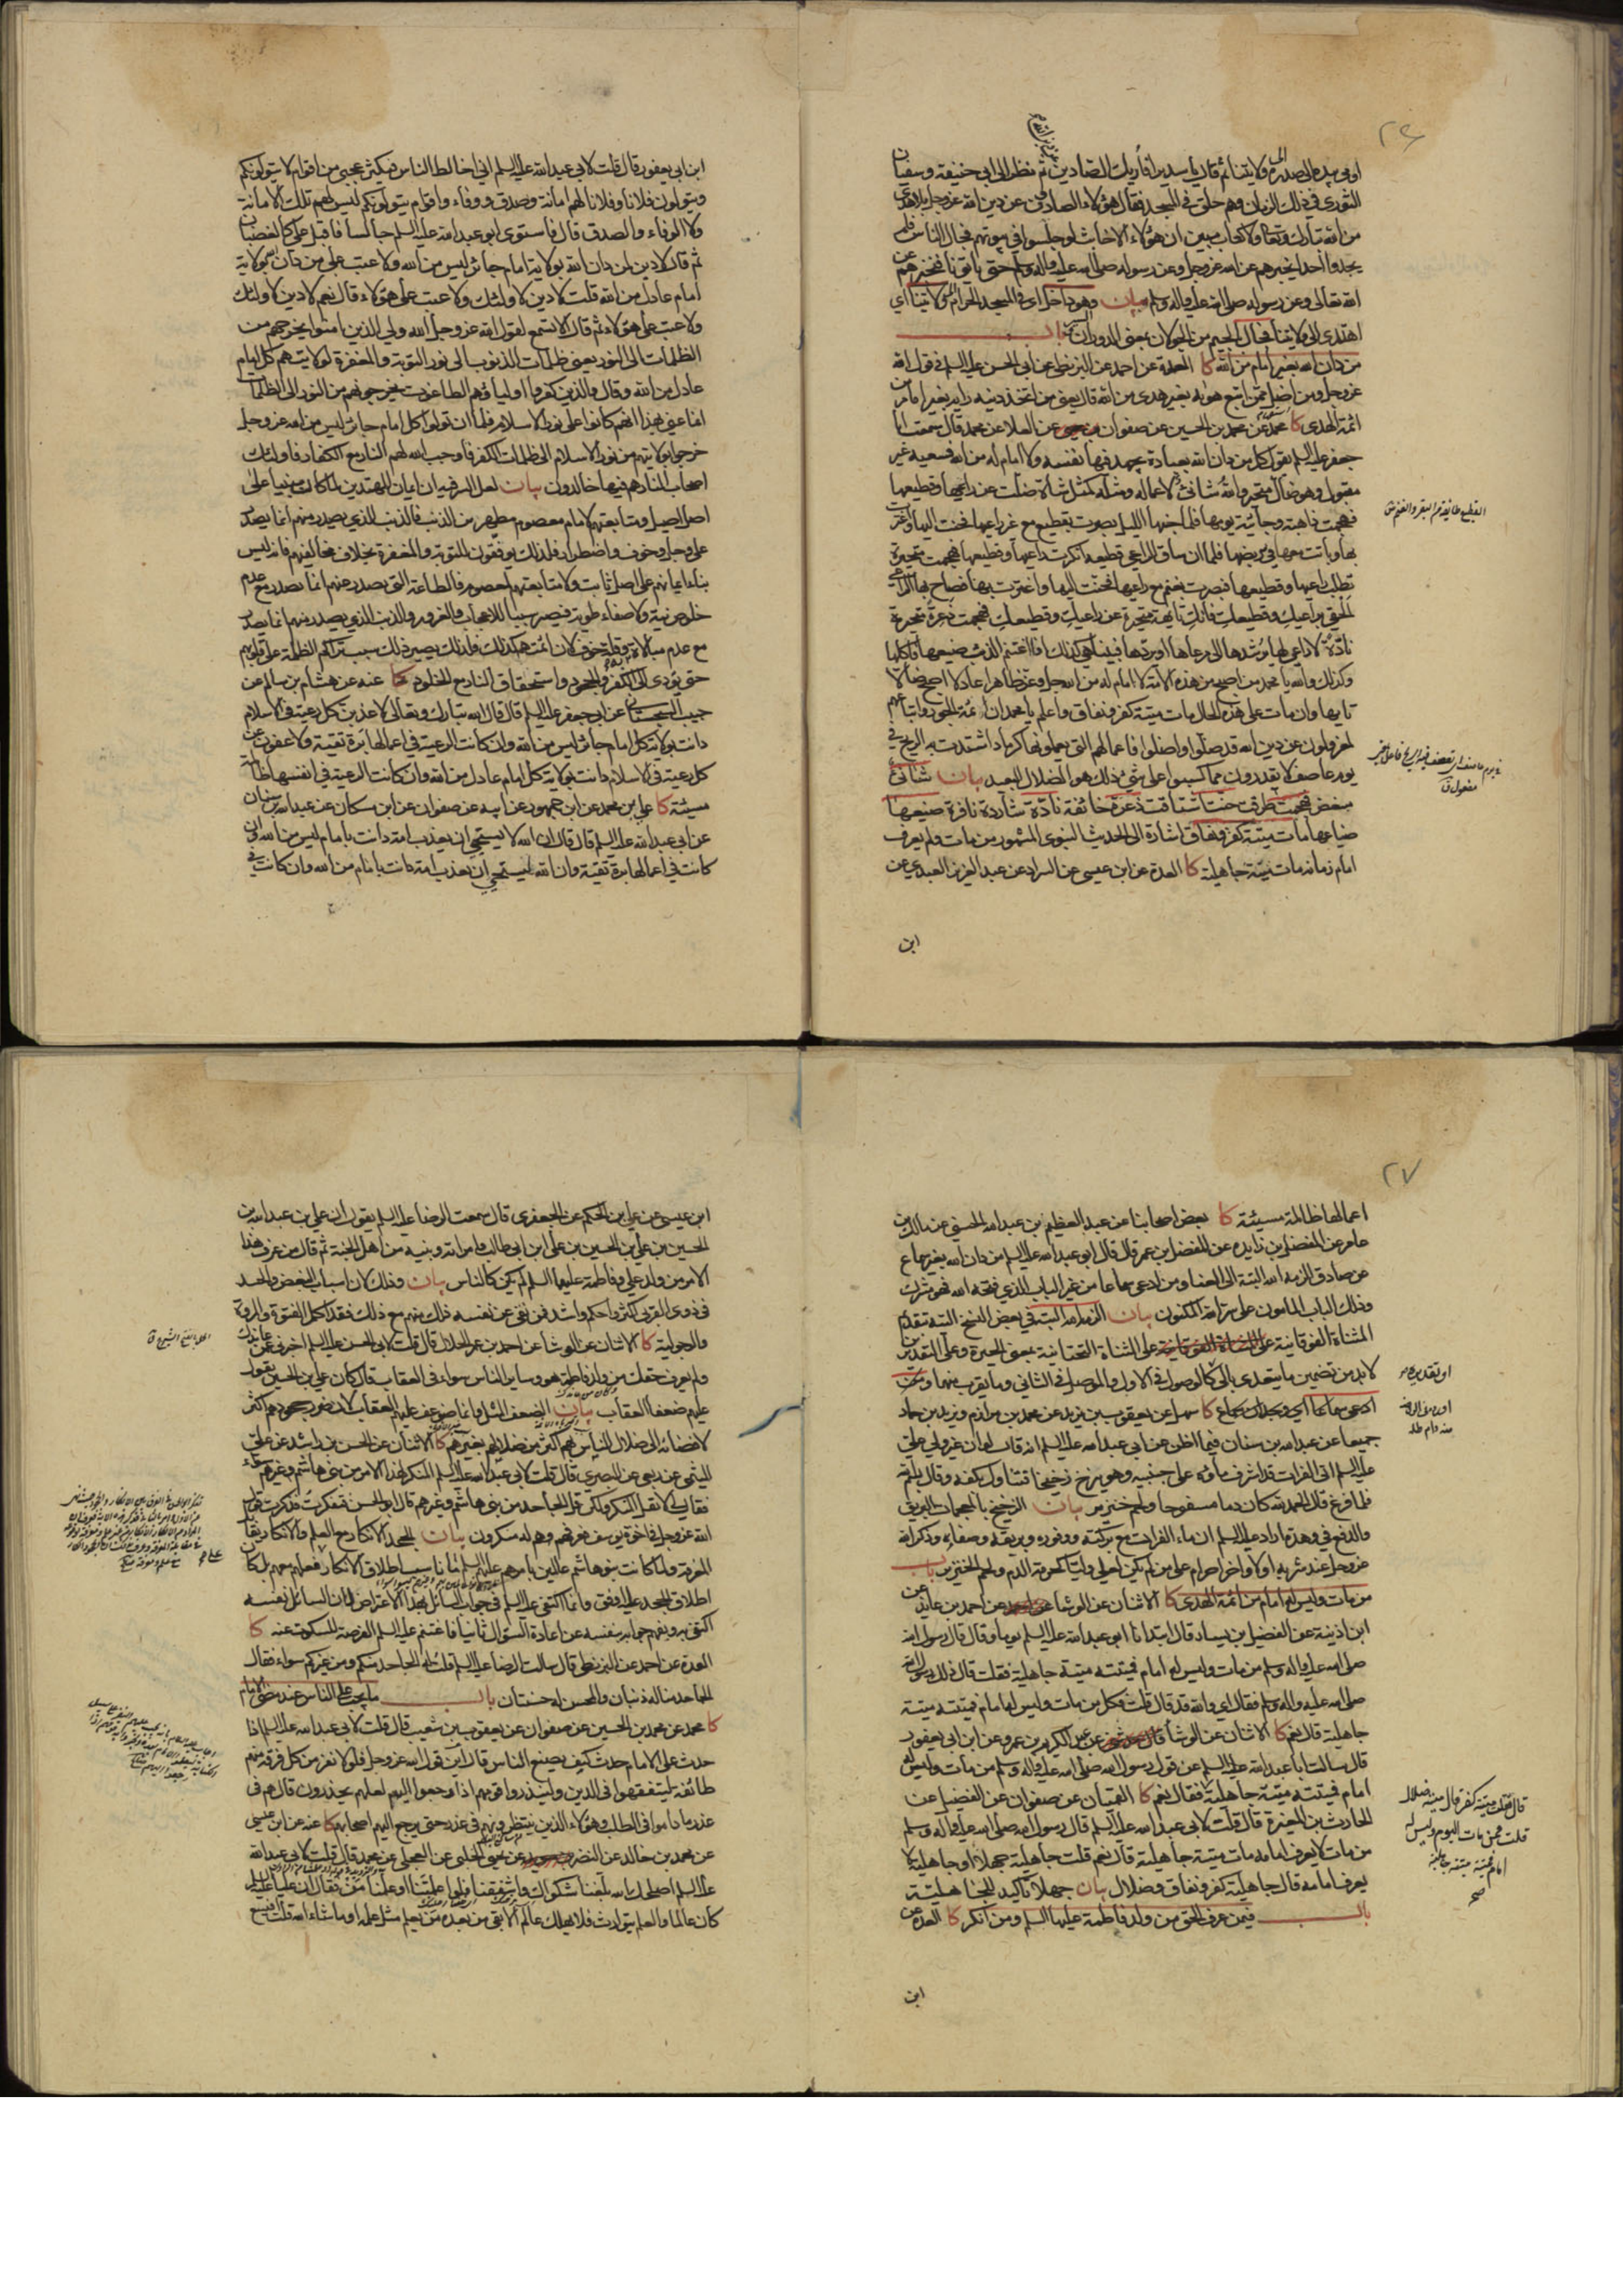 ٢٦
اومى بيده الى صدره ولايتنا ثم قال يا سدير افاريك الصادين ثم نظر الى ابي حنيفة وسفيان
الثوري في ذلك الزمان وهم حلق في المسجد فقال هؤلاء الصادون عن دين الله عز وجل بلا هدى
من الله تبارك وتعالى ولا كتاب مبين ان هؤلاء الاخابث لو جلسوا في بيوتهم فجال الناس فلم
يجدوا احدا يخبرهم عن الله عز وجل وعن رسوله صلى الله عليه واله وسلم حتى ياتونا فنخبرهم عن
الله تعالى وعن رسوله صلى الله عليه واله وسلم بيان وهو داخل اى في المسجد الحرام الى ولايتنا اى
اهتدى الى ولايتنا فجال بالجيم من الجولان بمعنى الدوران باب
من دان الله بغير امام من الله كا العدة عن احمد عن البزنطي عن ابي الحسن عليه السلم في قول الله
عز وجل ومن اضل ممن اتبع هواه بغير هدى من الله قال يعني من اتخذ دينه رايه بغير امام من
ائمة الهدى كا محمد عن محمد بن الحسين عن صفوان عن العلا عن محمد قال سمعت ابا
جعفر عليه السلم يقول كل من دان الله بعبادة يجهد فيها نفسه ولا امام له من الله فسعيه غير
مقبول وهو ضال متحير والله شانئ لاعماله ومثله كمثل شاة ضلت عن راعيها وقطيعها
فهجمت ذاهبة وجائية يومها فلما جنها الليل بصرت بقطيع مع غير راعيها فحنت اليها واغترت
بها وباتت معها في مربضها فلما ان ساق الراعي قطيعه انكرت راعيها وقطيعها فهجمت متحيرة
تطلب راعيها وقطيعها فبصرت بغنم مع راعيها فحنت اليها واغترت بها فصاح بها الراعي
الحقي براعيك وقطيعك فانك تايهة متحيرة عن راعيك وقطيعك فهجمت ذعرة متحيرة
نادة لا راعي لها يرشدها الى مرعاها او يردها فبينا هي كذلك اذا اغتنم الذئب ضيعتها فاكلها
وكذلك والله يا محمد من اصبح من هذه الامة لا امام له من الله جل وعز ظاهرا عادلا اصبح ضالا
تايها وان مات على هذه الحال مات ميتة كفر ونفاق واعلم يا محمد ان ائمة الجور واتباعهم
لمعزولون عن دين الله قد ضلوا واضلوا فاعمالهم التي يعملونها كرماد اشتدت به الريح في
يوم عاصف لا يقدرون مما كسبوا على شئ ذلك هو الضلال البعيد بيان شانئ
مبغض فهجمت طرقت حنت اشتاقت ذعرة خائفة نادة شاردة نافرة ضيعتها
ضياعها مات ميتة كفر ونفاق اشارة الى الحديث النبوي المشهور من مات ولم يعرف
امام زمانه مات ميتة جاهلية كا العدة عن ابن عيسى عن السراد عن عبد العزيز العبدي عن
ابن
ابن ابي يعفور قال قلت لابي عبد الله عليه السلم اني اخالط الناس فيكثر عجبي من اقوام لا يتولونكم
ويتولون فلانا وفلانا لهم امانة وصدق ووفاء واقوام يتولونكم ليس لهم تلك الامانة
ولا الوفاء والصدق قال فاستوى ابو عبد الله عليه السلم جالسا فاقبل علي كالغضبان
ثم قال لا دين لمن دان الله بولاية امام جائر ليس من الله ولا عتب على من دان بولاية
امام عادل من الله قلت لا دين لاولئك ولا عتب على هؤلاء قال نعم لا دين لاولئك
ولا عتب على هؤلاء ثم قال الا تسمع لقول الله عز وجل الله ولي الذين امنوا يخرجهم من
الظلمات الى النور يعني ظلمات الذنوب الى نور التوبة والمغفرة لولايتهم كل امام
عادل من الله وقال والذين كفروا اولياؤهم الطاغوت يخرجونهم من النور الى الظلمات
انما عنى بهذا انهم كانوا على نور الاسلام فلما ان تولوا كل امام جائر ليس من الله عز وجل
خرجوا بولايتهم من نور الاسلام الى ظلمات الكفر فاوجب الله لهم النار مع الكفار فاولئك
اصحاب النار هم فيها خالدون بيان لعل السر فيه ان ايمان المهتدين لما كان مبنيا على
اصل اصيل ومتابعتهم لامام معصوم مطهر من الذنب فالذنب الذي يصدر منهم انما يصدر
على وجل وخوف واضطرار فلذلك يوفقون للتوبة والمغفرة بخلاف مخالفيهم فانه ليس
بناء ايمانهم على اصل ثابت ولا متابعتهم لمعصوم فالطاعة التي يصدر عنهم انما تصدر مع عدم
خلوص نية ولا صفاء طوية فيصير سببا للاعجاب والغرور والذنب الذي يصدر منهم انما يصدر
مع عدم مبالاة وقلة خوف لان ائمتهم كذلك فلذلك يصير ذلك سبب تراكم الظلمة على قلوبهم
حتى يؤدي الى الكفر والجحود واستحقاق النار مع الخلود كا عنه عن هشام بن سالم عن
حبيب السجستاني عن ابي جعفر عليه السلم قال قال الله تبارك وتعالى لاعذبن كل رعية في الاسلام
دانت بولاية كل امام جائر ليس من الله وان كانت الرعية في اعمالها برة تقية ولاعفون عن
كل رعية في الاسلام دانت بولاية كل امام عادل من الله وان كانت الرعية في انفسها ظالمة
مسيئة كا علي بن محمد عن ابن جمهور عن ابيه عن صفوان عن ابن مسكان عن عبد الله بن سنان
عن ابي عبد الله عليه السلم قال قال ان الله لا يستحيي ان يعذب امة دانت بامام ليس من الله وان
كانت في اعمالها برة تقية وان الله ليستحيي ان يعذب امة دانت بامام من الله وان كانت في
٢٧
اعمالها ظالمة مسيئة كا بعض اصحابنا عن عبد العظيم بن عبد الله الحسني عن مالك بن
عامر عن المفضل بن زايدة عن المفضل بن عمر قال قال ابو عبد الله عليه السلم من دان الله بغير سماع
عن صادق الزمه الله البتة الى العنا ومن ادعى سماعا من غير الباب الذي فتحه الله فهو مشرك
وذلك الباب المامون على سر الله المكنون بيان الزمه الله البتة في بعض النسخ التيه بتقديم
المثناة الفوقانية على المثناة التحتانية بمعنى الحيرة وعلى التقديرين
لا بد من تضمين ما يتعدى بالى كالوصول في الاول والموصل في الثاني وما يقرب منهما
ادعى سماعا اي وجدان سماع كا عن يعقوب بن يزيد عن محمد بن مرازم ويزيد بن حماد
جميعا عن عبد الله بن سنان فيما اظن عن ابي عبد الله عليه السلم انه قال لو ان غير ولي علي
عليه السلم اتى الفرات وقد اشرف ماؤه على جنبيه وهو يزخ زخيخا فتناول بكفه وقال بسم الله
فلما فرغ قال الحمد لله كان دما مسفوحا ولحم خنزير بيان الزخيخ بالمعجمات البريق
والدفع في وهدة اراد عليه السلم ان ماء الفرات مع بركته ووفوره وبريقه وصفائه وذكر الله
عز وجل عند شربه اولا واخرا حرام على من لم يكن لعلي وليا كحرمة الدم ولحم الخنزير باب
من مات وليس له امام من ائمة الهدى كا الاثنان عن الوشا عن احمد بن عايذ عن
ابن اذينة عن الفضيل بن يسار قال ابتدانا ابو عبد الله عليه السلم يوما وقال قال رسول الله
صلى الله عليه واله وسلم من مات وليس له امام فميتته ميتة جاهلية فقلت قال ذلك رسول الله
صلى الله عليه واله وسلم فقال اي والله قد قال قلت فكل من مات وليس له امام فميتته ميتة
جاهلية قال نعم كا الاثنان عن الوشا عن عبد الكريم بن عمرو عن ابن ابي يعفور
قال سالت ابا عبد الله عليه السلم عن قول رسول الله صلى الله عليه واله وسلم من مات وليس له
امام فميتته ميتة جاهلية فقال نعم كا القميان عن صفوان عن الفضيل عن
الحارث بن المغيرة قال قلت لابي عبد الله عليه السلم قال رسول الله صلى الله عليه واله وسلم
من مات لا يعرف امامه مات ميتة جاهلية قال نعم قلت جاهلية جهلاء او جاهلية لا
يعرف امامه قال جاهلية كفر ونفاق وضلال بيان جهلاء تاكيد للجاهلية
باب فيمن عرف الحق من ولد فاطمة عليها السلم ومن انكر كا العدة عن
ابن
قال فقلت ميتة كفر قال ميتة ضلال
قلت فمن مات اليوم وليس له
امام فميتته ميتة جاهلية
صح
ابن عيسى عن علي بن الحكم عن الجعفري قال سمعت الرضا عليه السلم يقول ان علي بن عبد الله بن
الحسين بن علي بن الحسين بن علي ابن ابي طالب وامراته وبنيه من اهل الجنة ثم قال من عرف هذا
الامر من ولد علي وفاطمة عليهما السلم لم يكن كالناس بيان وذلك لان اسباب البغض والحسد
في ذوي القربى اكثر واحكم واشد فمن نفى عن نفسه ذلك منهم مع ذلك فقد اكمل الفتوة والمروة
والرجولية كا الاثنان عن الوشا عن احمد بن عمر الحلال قال قلت لابي الحسن عليه السلم اخبرني عمن عاندك
ولم يعرف حقك من ولد فاطمة هو وساير الناس سواء في العقاب قال كان علي بن الحسين يقول
عليهم ضعفا العقاب بيان الضعف المثل وانما ضوعف عليهم العقاب لان ضرر جحودهم اكثر
لافضائه الى ضلال الناس بهم اكثر من ضلالهم بغيرهم كا الاثنان عن الحسن بن راشد عن علي
الميثمي عن ربعي عن البصري قال قلت لابي عبد الله عليه السلم المنكر لهذا الامر من بني هاشم وغيرهم سواء
فقال لي لا تقل المنكر ولكن قل الجاحد من بني هاشم وغيرهم قال ابو الحسن فتفكرت فذكرت قول
الله عز وجل في اخوة يوسف فعرفهم وهم له منكرون بيان الجحد الانكار مع العلم والانكار يقابل
المعرفة ولما كانت بنو هاشم عالمين بامرهم عليهم السلم لم يناسب اطلاق الانكار
اطلاق الجحد عليه اوفق وانما اكتفى عليه السلم في جواب السائل بهذا الاعتراض لان السائل نفسه
العدة عن احمد عن البزنطي قال سالت الرضا عليه السلم قلت له الجاحد منكم ومن غيركم سواء فقال
الجاحد منا له ذنبان والمحسن له حسنتان باب ما يجب على الناس عند مضي الامام
كا محمد عن محمد بن الحسين عن صفوان عن يعقوب بن شعيب قال قلت لابي عبد الله عليه السلم اذا
حدث على الامام حدث كيف يصنع الناس قال اين قول الله عز وجل فلولا نفر من كل فرقة منهم
طائفة ليتفقهوا في الدين ولينذروا قومهم اذا رجعوا اليهم لعلهم يحذرون قال هم في
عذر ما داموا في الطلب وهؤلاء الذين ينتظرونهم في عذر حتى يرجع اليهم اصحابهم كا عنه عن ابن عيسى
عن محمد بن خالد عن النضر عن يحيى الحلبي عن العجلي عن محمد قال قلت لابي عبد الله
عليه السلم اصلحك الله بلغنا شكواك واشفقنا فلو اعلمتنا او علمنا من فقال ان عليا عليه السلم
كان عالما والعلم يتوارث فلا يهلك عالم الا بقي من بعده من يعلم مثل علمه او ما شاء الله قلت افيسع